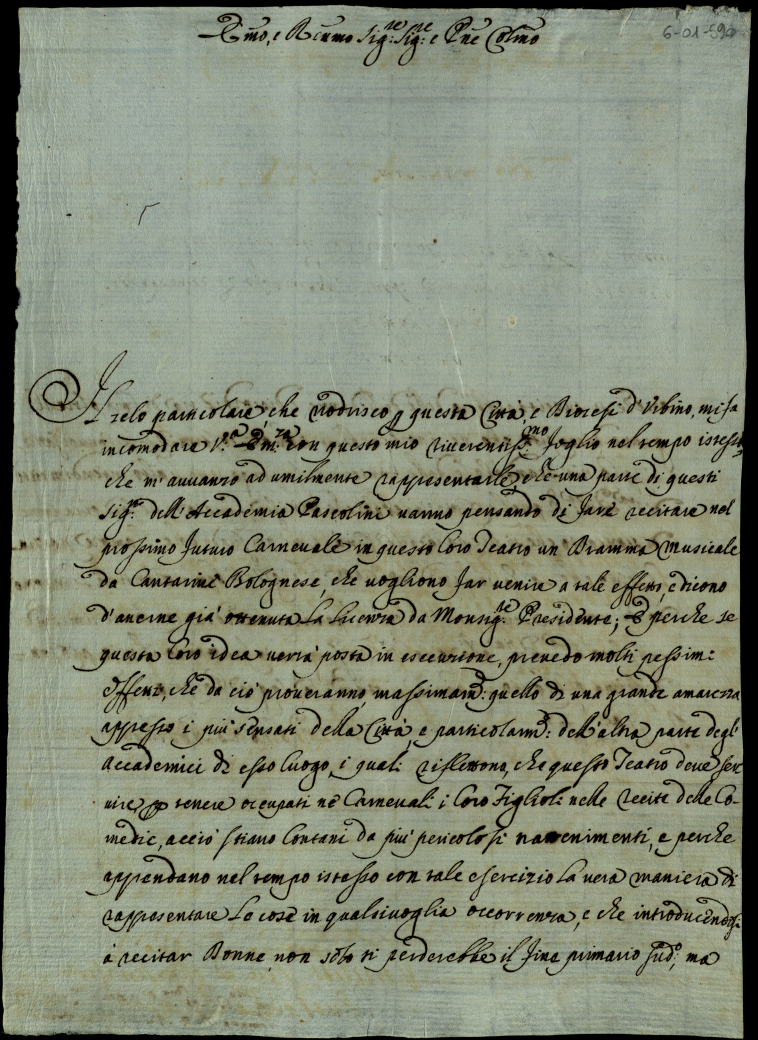 Emo, e Rẽumo Sig:re Sig:re e Pñe Colmo
6-01-590
Il zelo particolare, che nodrisco p questa Città, e Diocesi d'Urbino, mi fa
incomodare V.ra Em:za con questo mio riverentiss:mo foglio nel tempo istesso,
che m'auuanzo ad umilmente rappresentarle, che una parte di questi
Sig:ri dell'Accademia Pascolini vanno pensando di fare recitare nel
prossimo futuro Carnevale in questo loro Teatro un Dramma musicale
da Cantarine Bolognese, che vogliono far venire a tale effetto, e dicono
d'averne già ottenuta la licenza da Monsig:re Presidente; E perche se
questa loro idea verrà posta in esecuzione, prevedo molti pessimi
effetti, che da ciò proveranno, massimam:e quello di una grande amarezza
appresso i più sensati della Città, e particolarm:e dell'altra parte degl'
Accademici di esso luogo, i quali riflettono, che questo Teatro deve ser
vire p tenere occupati nè Carnevali i loro Figlioli nelle recite delle Co-
medie, acciò stiano lontani da più pericolosi trattenimenti, e perche
apprendano nel tempo istesso con tale esercizio la vera maniera di
rappresentare le cose in qualsivoglia occorrenza, e che introducendosi
à recitar Donne, non solo si perderebbe il fine primario sud:o, ma